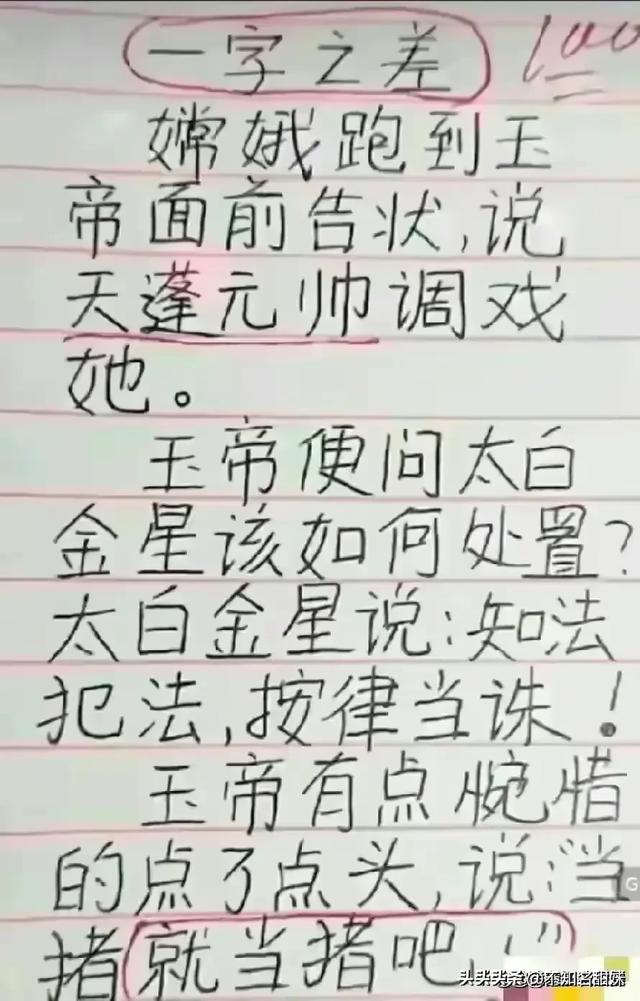 一字之差 100
嫦娥跑到玉
帝面前告状,说
天蓬元帅调戏
她。
玉帝便问太白
金星该如何处置?
太白金星说:知法
犯法,按律当诛!
玉帝有点惋惜
的点了点头,说:"当
猪就当猪吧,!"